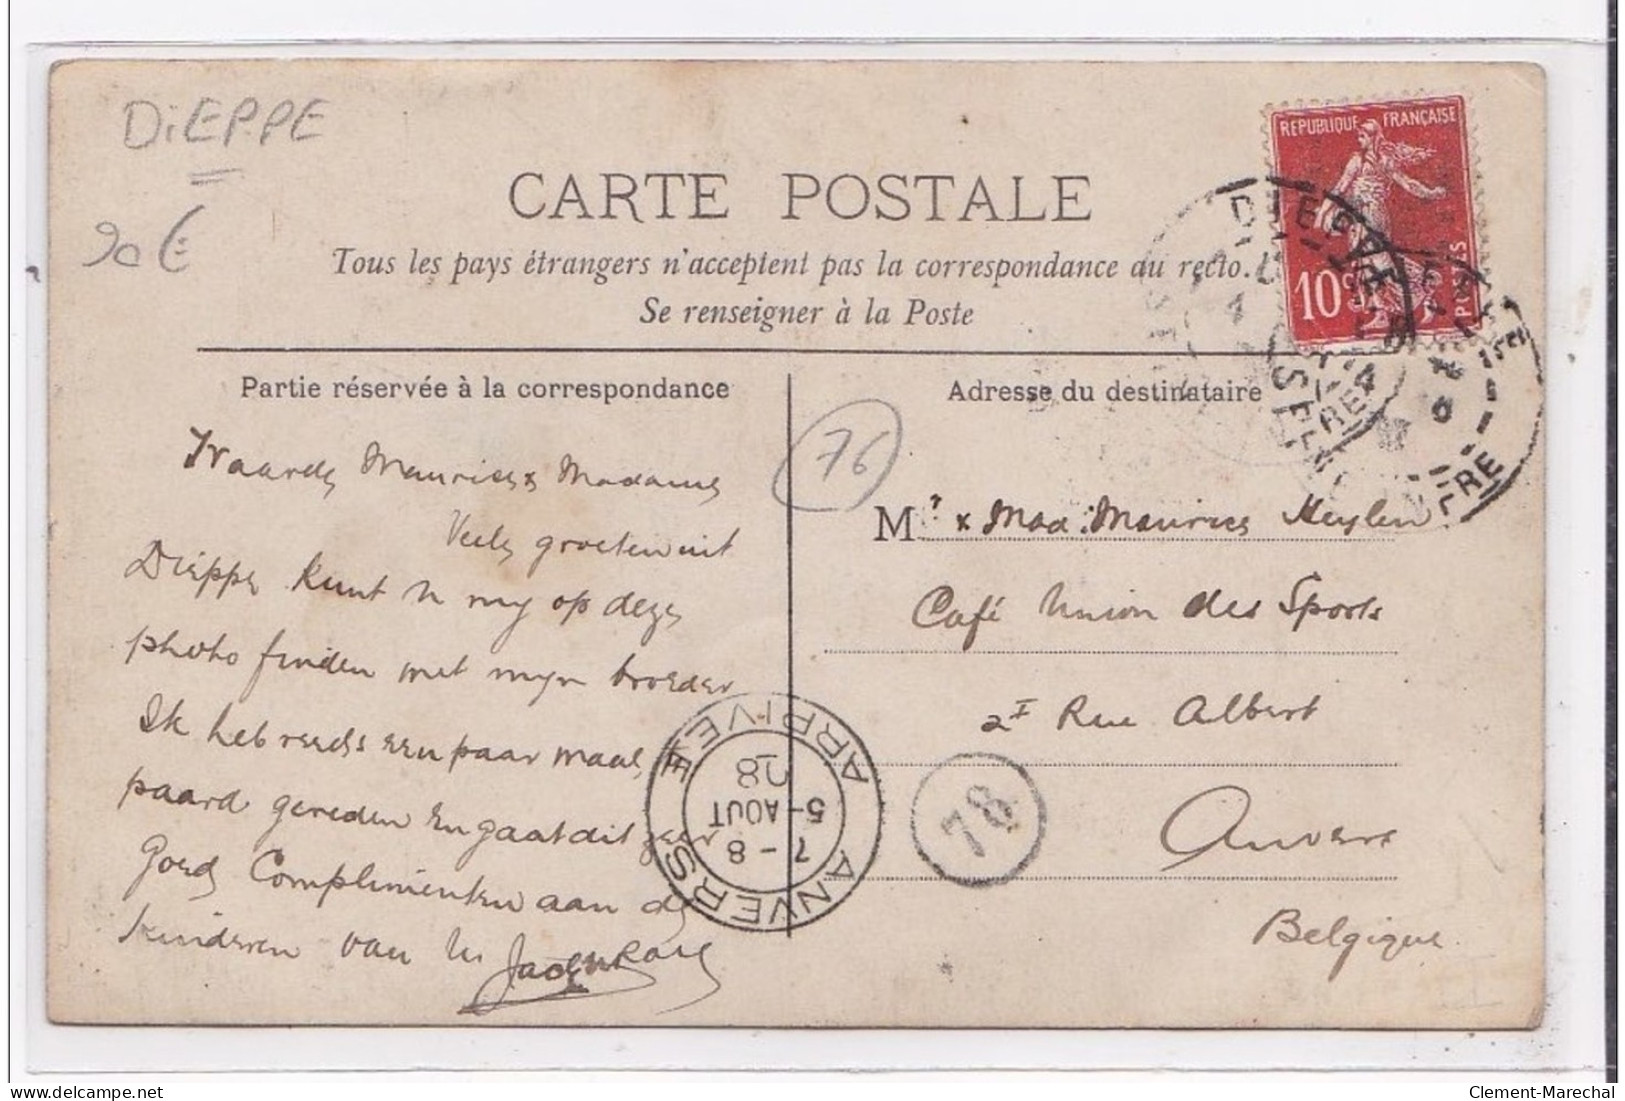 DiEPPE
90€
CARTE POSTALE
Tous les pays étrangers n'acceptent pas la correspondance au recto.
Se renseigner à la Poste
REPUBLIQUE FRANÇAISE
10c
POSTES
DIEPPE
Partie réservée à la correspondance
Adresse du destinataire
76
Waarde Maurice x Madame
Veele groeten uit
Dieppe kunt U my op deze
photo finden met mijn broeder
Ik heb reeds een paar maal
paard gereden en gaat dit zeer
Goed Complimenten aan de
kinderen van U
Mr x Mad: Maurice Heylen
Café Union des Sports
21 Rue Albert
Anvers
Belgique
ANVERS ARRIVEE
7-8
5-AOUT
08
78
delcampe.net
Clement-Marechal